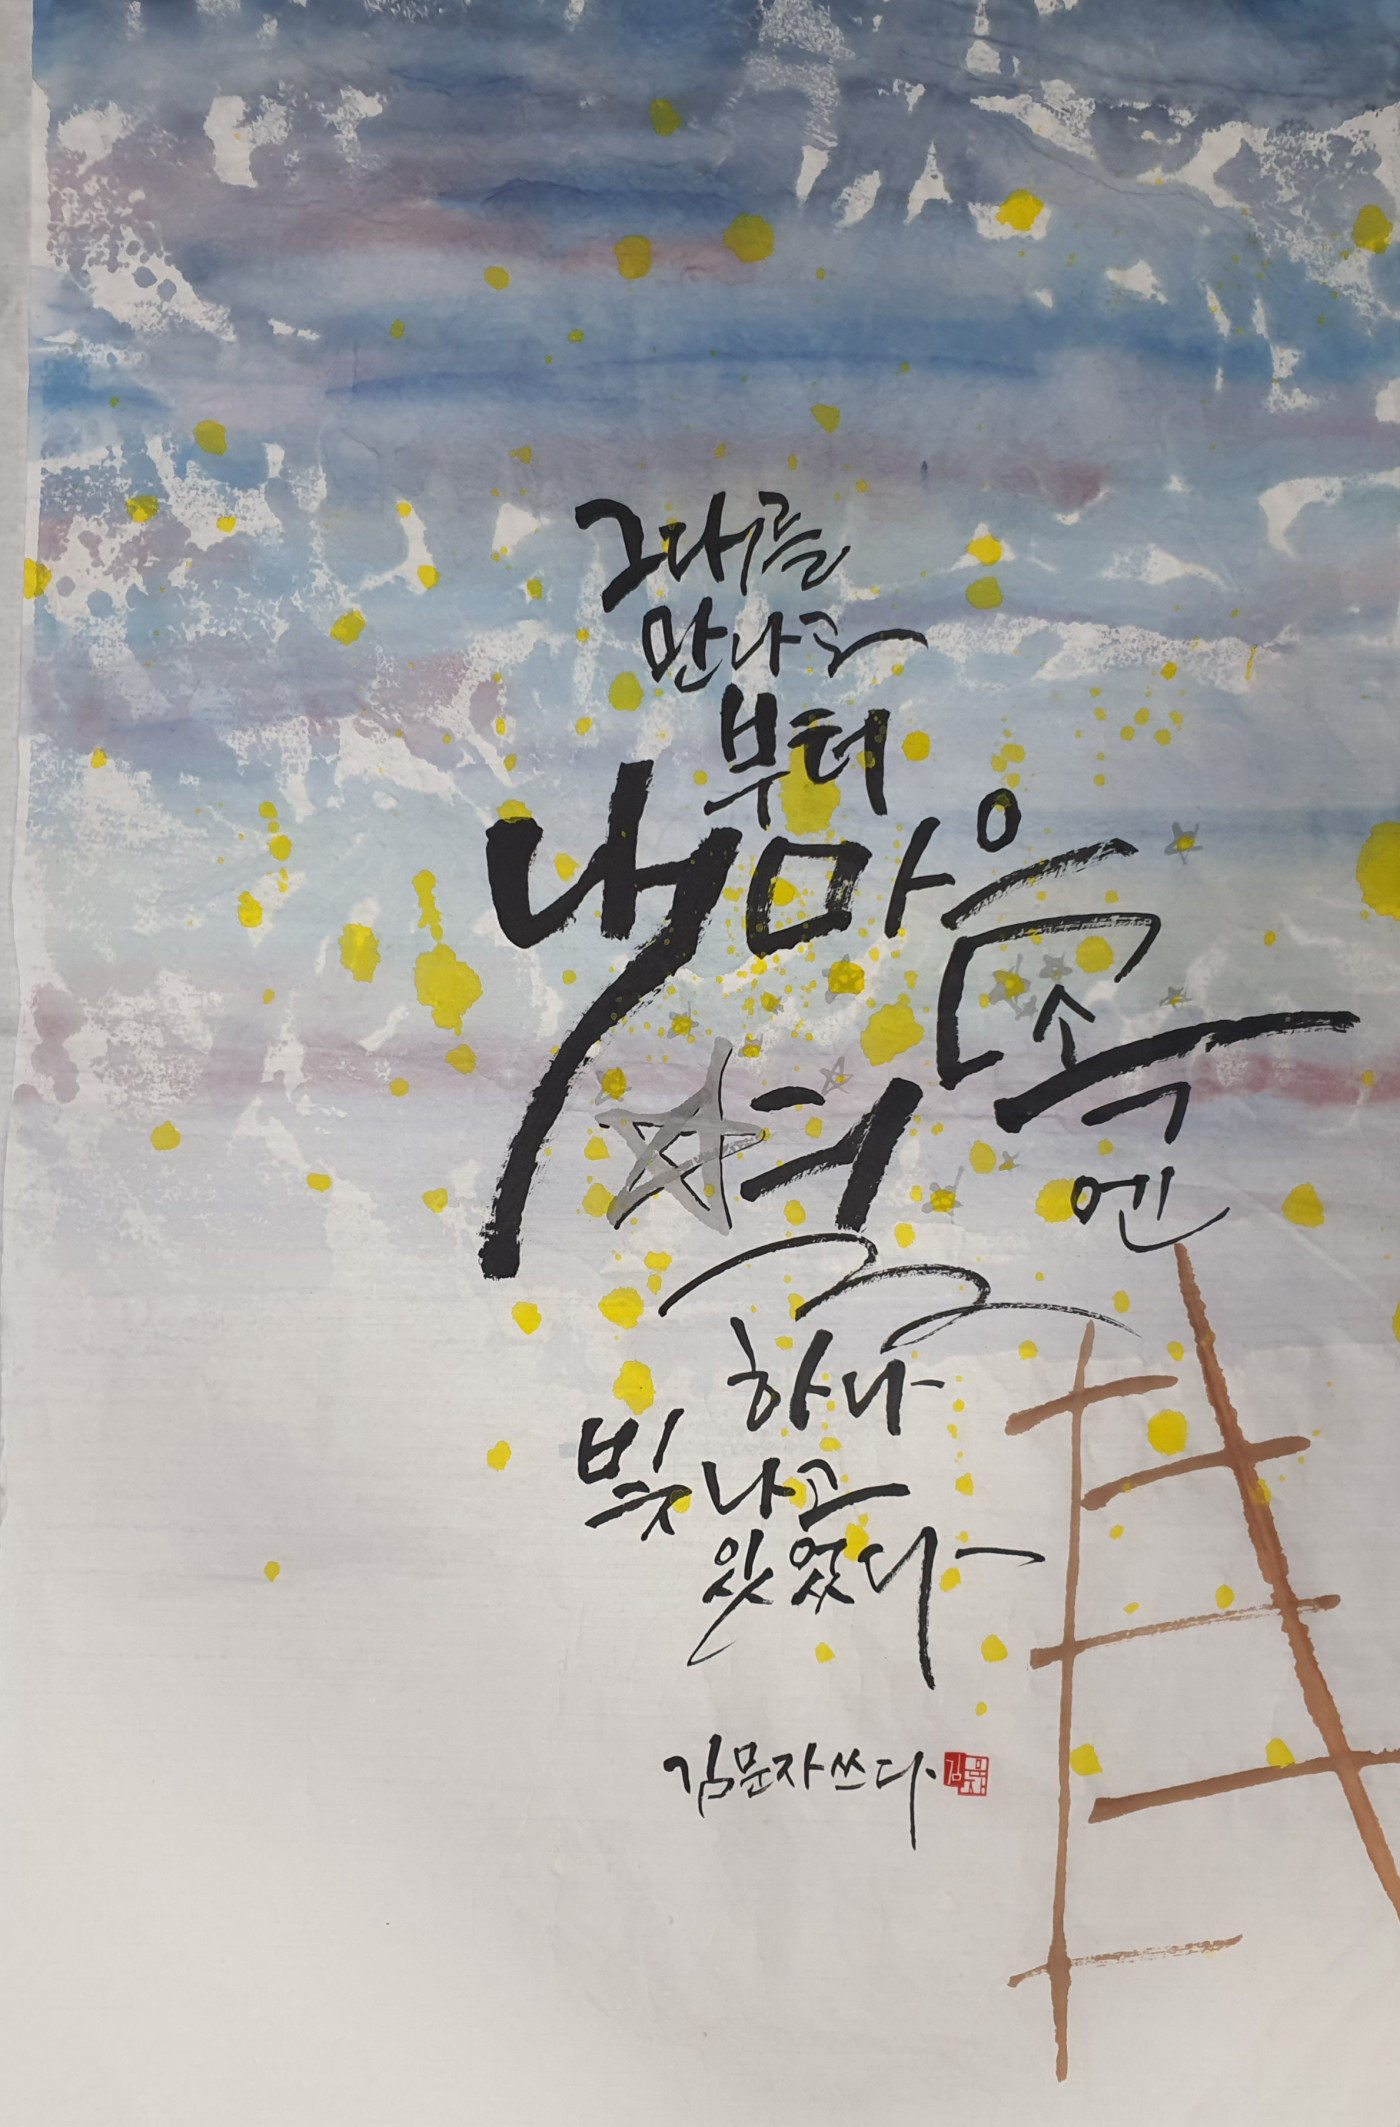 그대를
만나고
부터
내 마음
속
엔
별
하나
빛나고
있었다
김문자 쓰다.
김문자